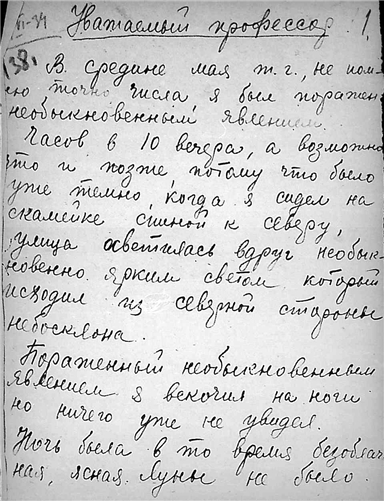 VI-34
Уважаемый профессор! 1
138.
В средине мая т.г., не пом-
ню точно числа, я был поражен
необыкновенным явлением.
Часов в 10 вечера, а возможно
что и позже, потому что было
уже темно, когда я сидел на
скамейке спиной к северу,
улица осветилась вдруг необык-
новенно ярким светом который
исходил из северной стороны
небосклона.
Пораженный необыкновенным
явлением я вскочил на ноги
но ничего уже не увидел.
Ночь была в то время безоблач
ная, ясная. Луны не было.